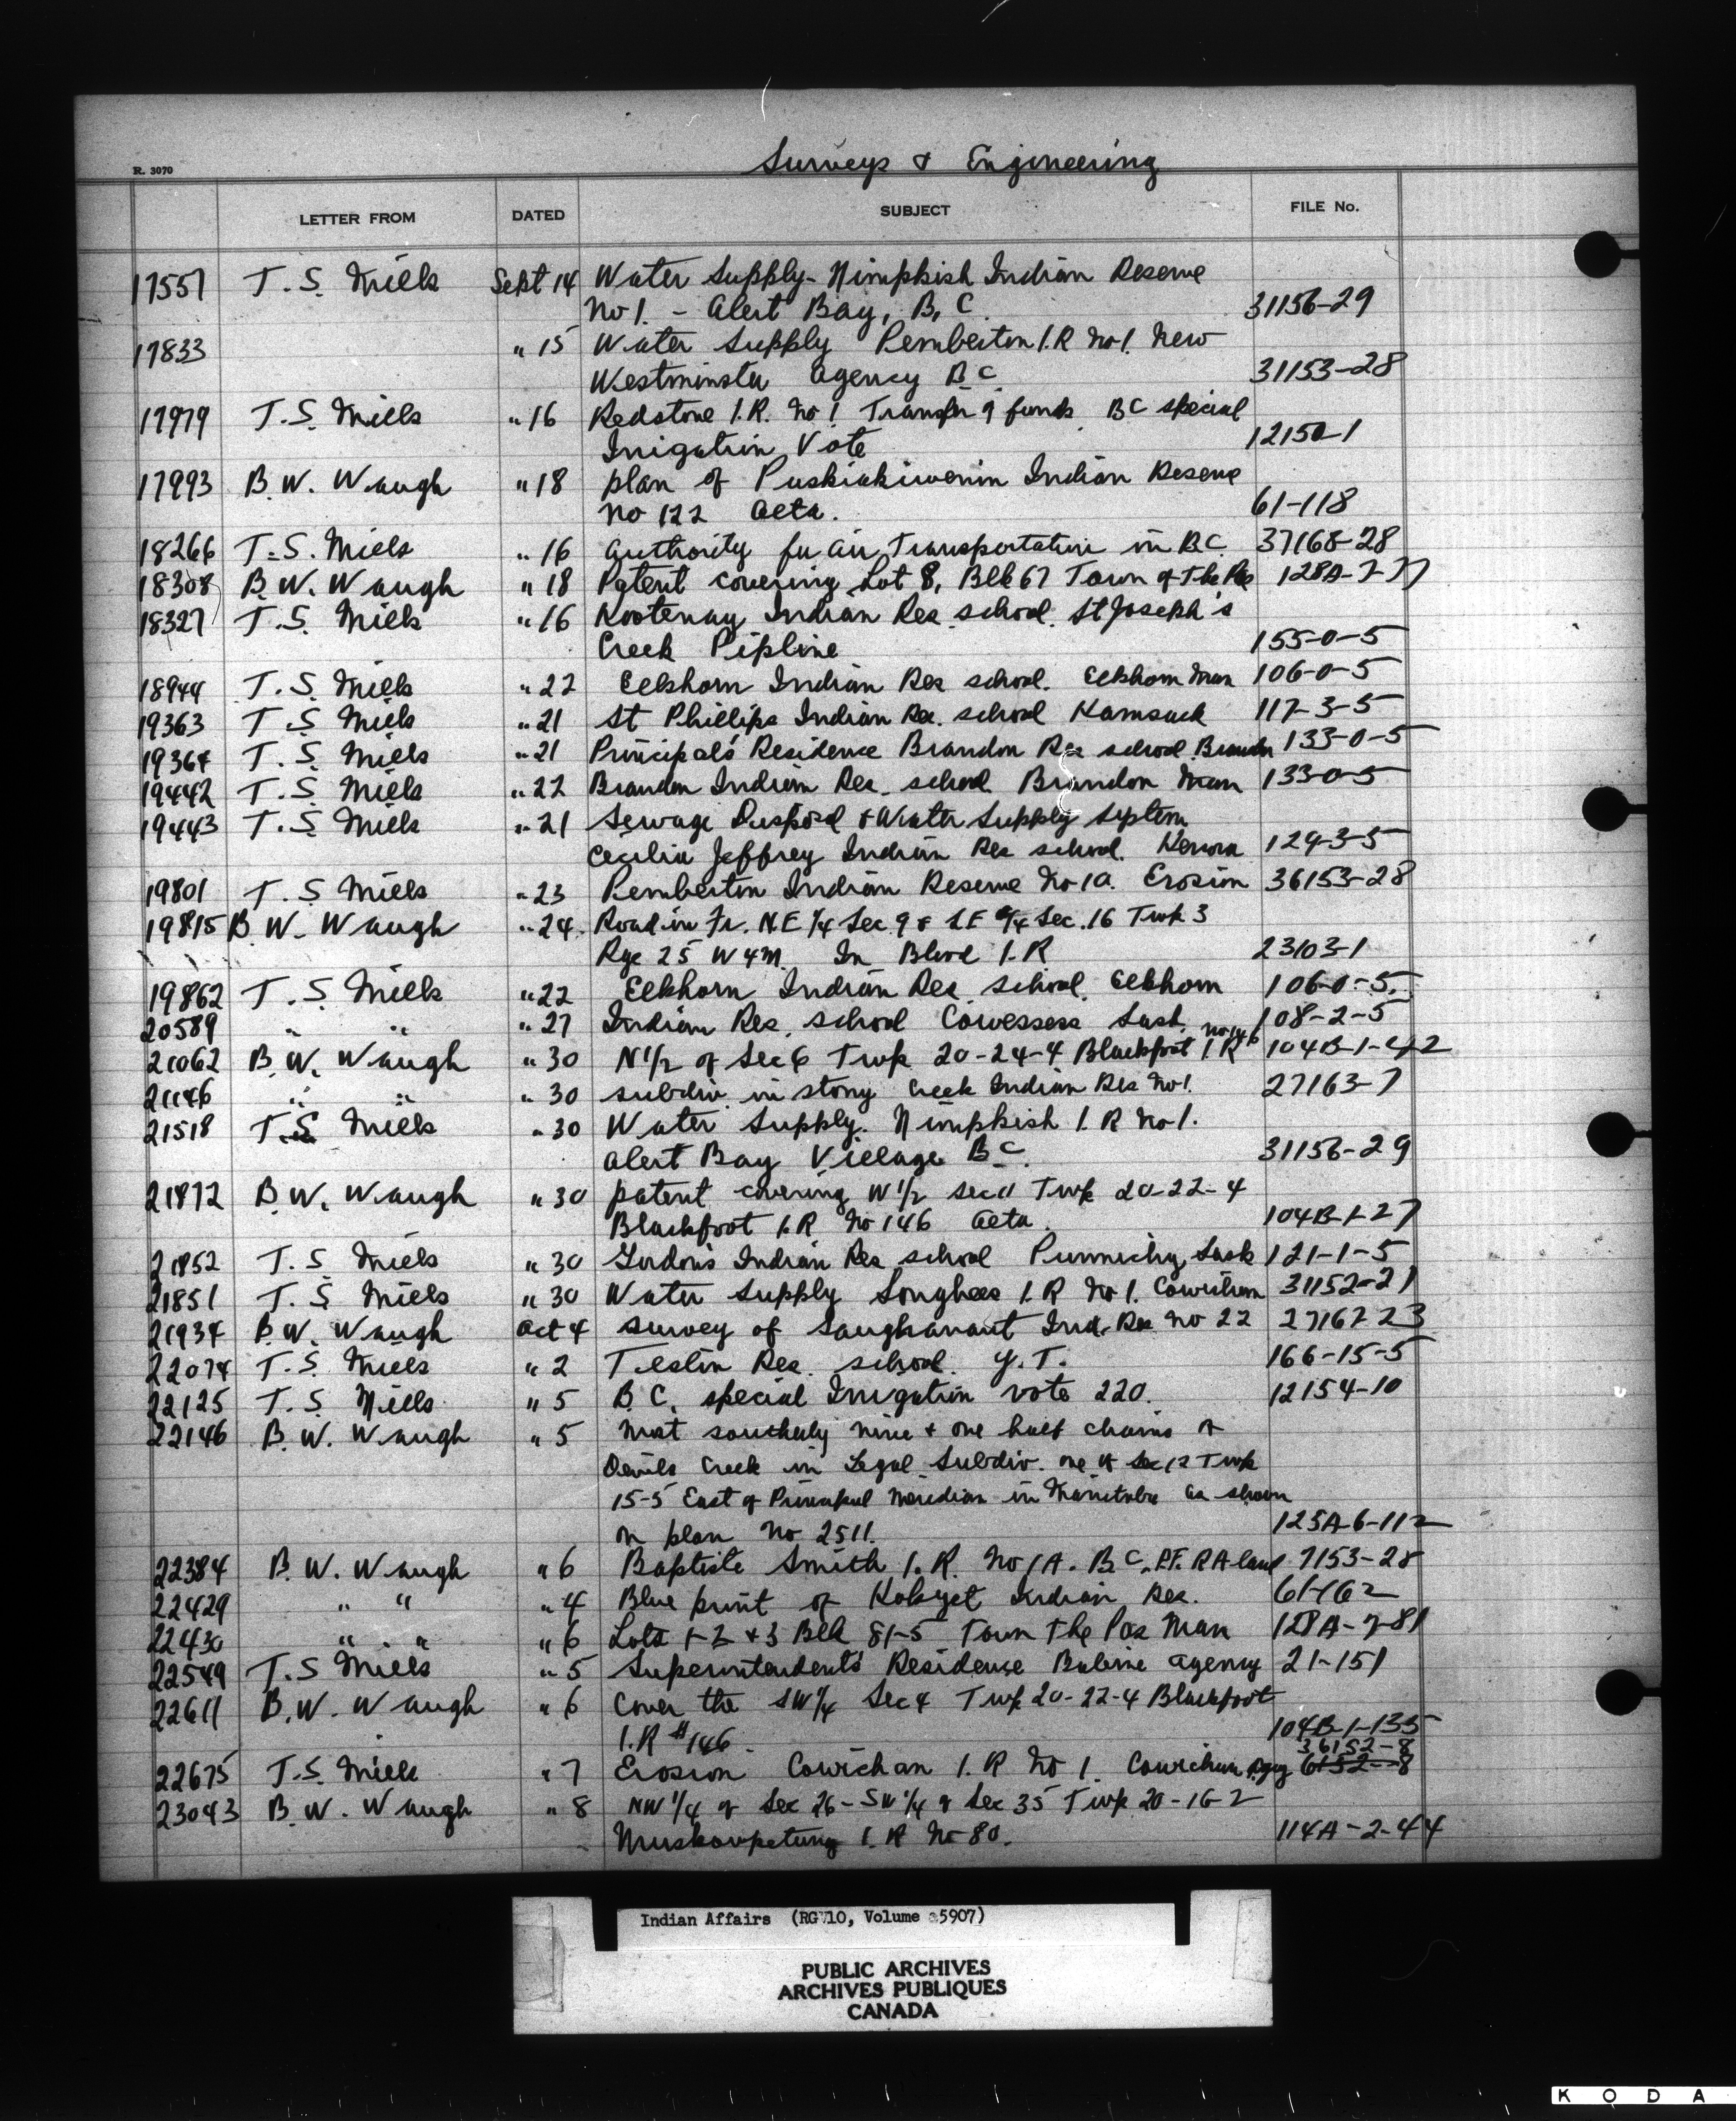 Surveys & Engineering
R. 3070
LETTER FROM DATED SUBJECT FILE No.
17551 T. S. Mills Sept 14 Water Supply - Nimpkish Indian Reserve
No 1. - Alert Bay, B, C. 31156-29
17833 " 15 Water Supply Pemberton I.R No 1. New
Westminster Agency B C 31153-28
17979 T. S. Mills " 16 Redstone I.R. No 1 Transfer of funds BC special
Irrigation Vote 12150-1
17993 B. W. Waugh " 18 plan of Puskiakiwenin Indian Reserve
No 122 Alta. 61-118
18266 T. S. Mills " 16 Authority for Air Transportation in B.C. 37168-28
18308 B. W. Waugh " 18 Patent covering Lot 8, Blk 67 Town of The Pas 128A-7-77
18327 T. S. Mills " 16 Kootenay Indian Res. school. St Joseph's
Creek Pipline 155-0-5
18944 T. S. Mills " 22 Elkhorn Indian Res school. Elkhorn Man 106-0-5
19363 T. S. Mills " 21 St Phillips Indian Res. school Kamsack 117-3-5
19364 T. S. Mills " 21 Principal's Residence Brandon Res school Brandon 133-0-5
19442 T. S. Mills " 22 Brandon Indian Res. school Brandon Man 133-0-5
19443 T. S. Mills " 21 Sewage Disposal & Water Supply System
Cecilia Jeffrey Indian Res school. Kenora 124-3-5
19801 T. S. Mills " 23 Pemberton Indian Reserve No 1A. Erosion 36153-28
19815 B. W. Waugh " 24. Road in Fr. N.E 1/4 Sec. 9 & S.E 1/4 Sec. 16 Twp 3
Rge 25 W4M. In Blood I.R 23103-1
19862 T. S. Mills " 22 Elkhorn Indian Res. school. Elkhorn 106-0-5.
20589 " " " 27 Indian Res. school Cowessess Sask. 108-2-5
21062 B. W. Waugh " 30 N 1/2 of Sec 6 Twp 20-24-4 Blackfoot I.R No 146 104B-1-42
21146 " " " 30 subdiv. in stony Creek Indian Res No 1. 27163-7
21518 T. S. Mills " 30 Water Supply. Nimpkish I.R No 1.
Alert Bay Village B C. 31156-29
21872 B. W. Waugh " 30 patent covering W 1/2 sec 11 Twp 20-22-4
Blackfoot I.R No 146 Alta. 104B-1-27
21852 T. S Mills " 30 Gordon's Indian Res school Punnichy, Sask 121-1-5
21851 T. S. Mills " 30 Water Supply Songhees I.R No 1. Cowichan 31152-21
21934 B. W. Waugh Oct 4 Survey of Ind. Res No 22 27167-23
22074 T. S. Mills " 2 Teslin Res. school. Y. T. 166-15-5
22125 T. S. Mills " 5 B. C. special Irrigation vote 220. 12154-10
22146 B. W. Waugh " 5 Most southerly nine & one half chains of
Devils Creek in Legal Subdiv. one of Sec 12 Twp
15-5 East of Principal Meridian in Manitoba as shown
on plan No 2511. 125A-6-112
22384 B. W. Waugh " 6 Baptiste Smith I.R. No 1A. B C. P.F. R A land 7153-28
22429 " " " 4 Blue print of Indian Res. 61-162
22430 " " " 6 Lots 1-2 & 3 Blk 81-5 Town The Pas Man 128A-7-81
22549 T. S Mills " 5 Superintendent's Residence Babine Agency 21-151
22611 B. W. Waugh " 6 Cover the SW 1/4 Sec 4 Twp 20-22-4 Blackfoot
I.R #146. 104B-1-135
36152-8
22675 T. S. Mills " 7 Erosion Cowichan I.R No 1. Cowichan Agcy 6152-8
23043 B. W. Waugh " 8 NW 1/4 of Sec 26 - SW 1/4 of Sec 35 Twp 20-16-2
Muskowpetung I.R No 80. 114A-2-44
Indian Affairs (RG 10, Volume 5907)
PUBLIC ARCHIVES
ARCHIVES PUBLIQUES
CANADA
K O D A